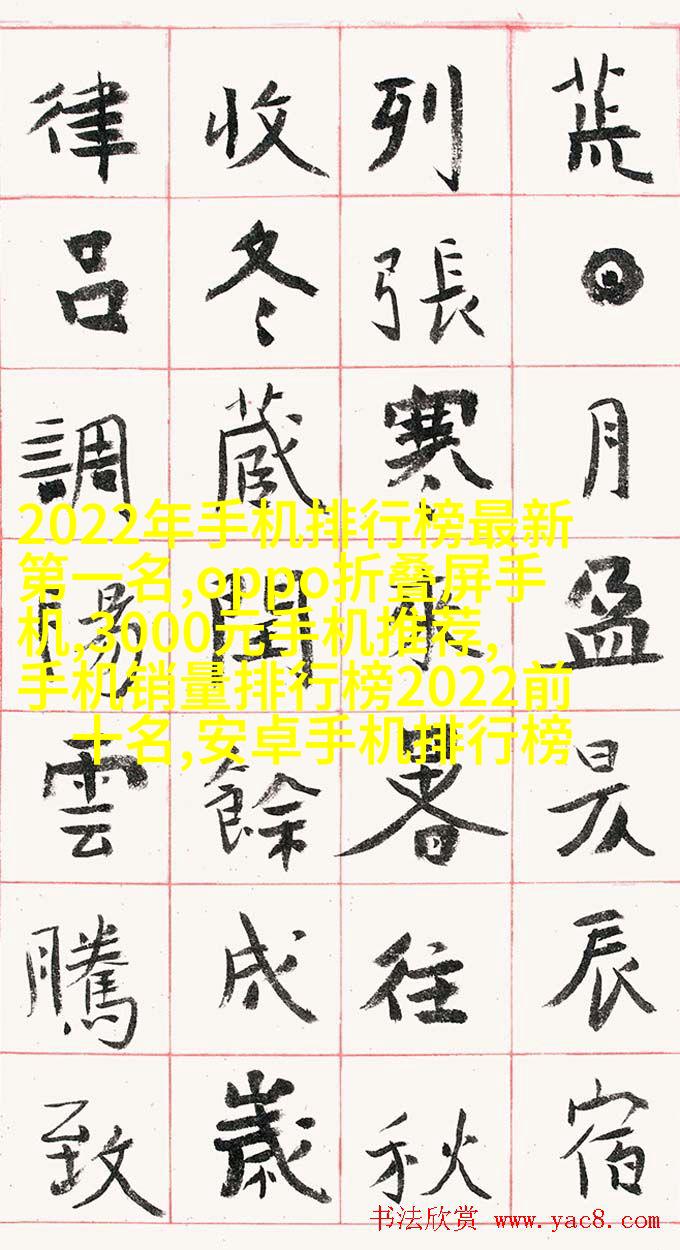 荒日月盈昃辰宿
列張寒來暑往秋
收冬藏閏餘成歲
律吕調陽雲騰致
2022年手机排行榜最新
第一名,oppo折叠屏手
机,3000元手机推荐,
手机销量排行榜2022前
十名,安卓手机排行榜
书法欣赏 www.yac8.com